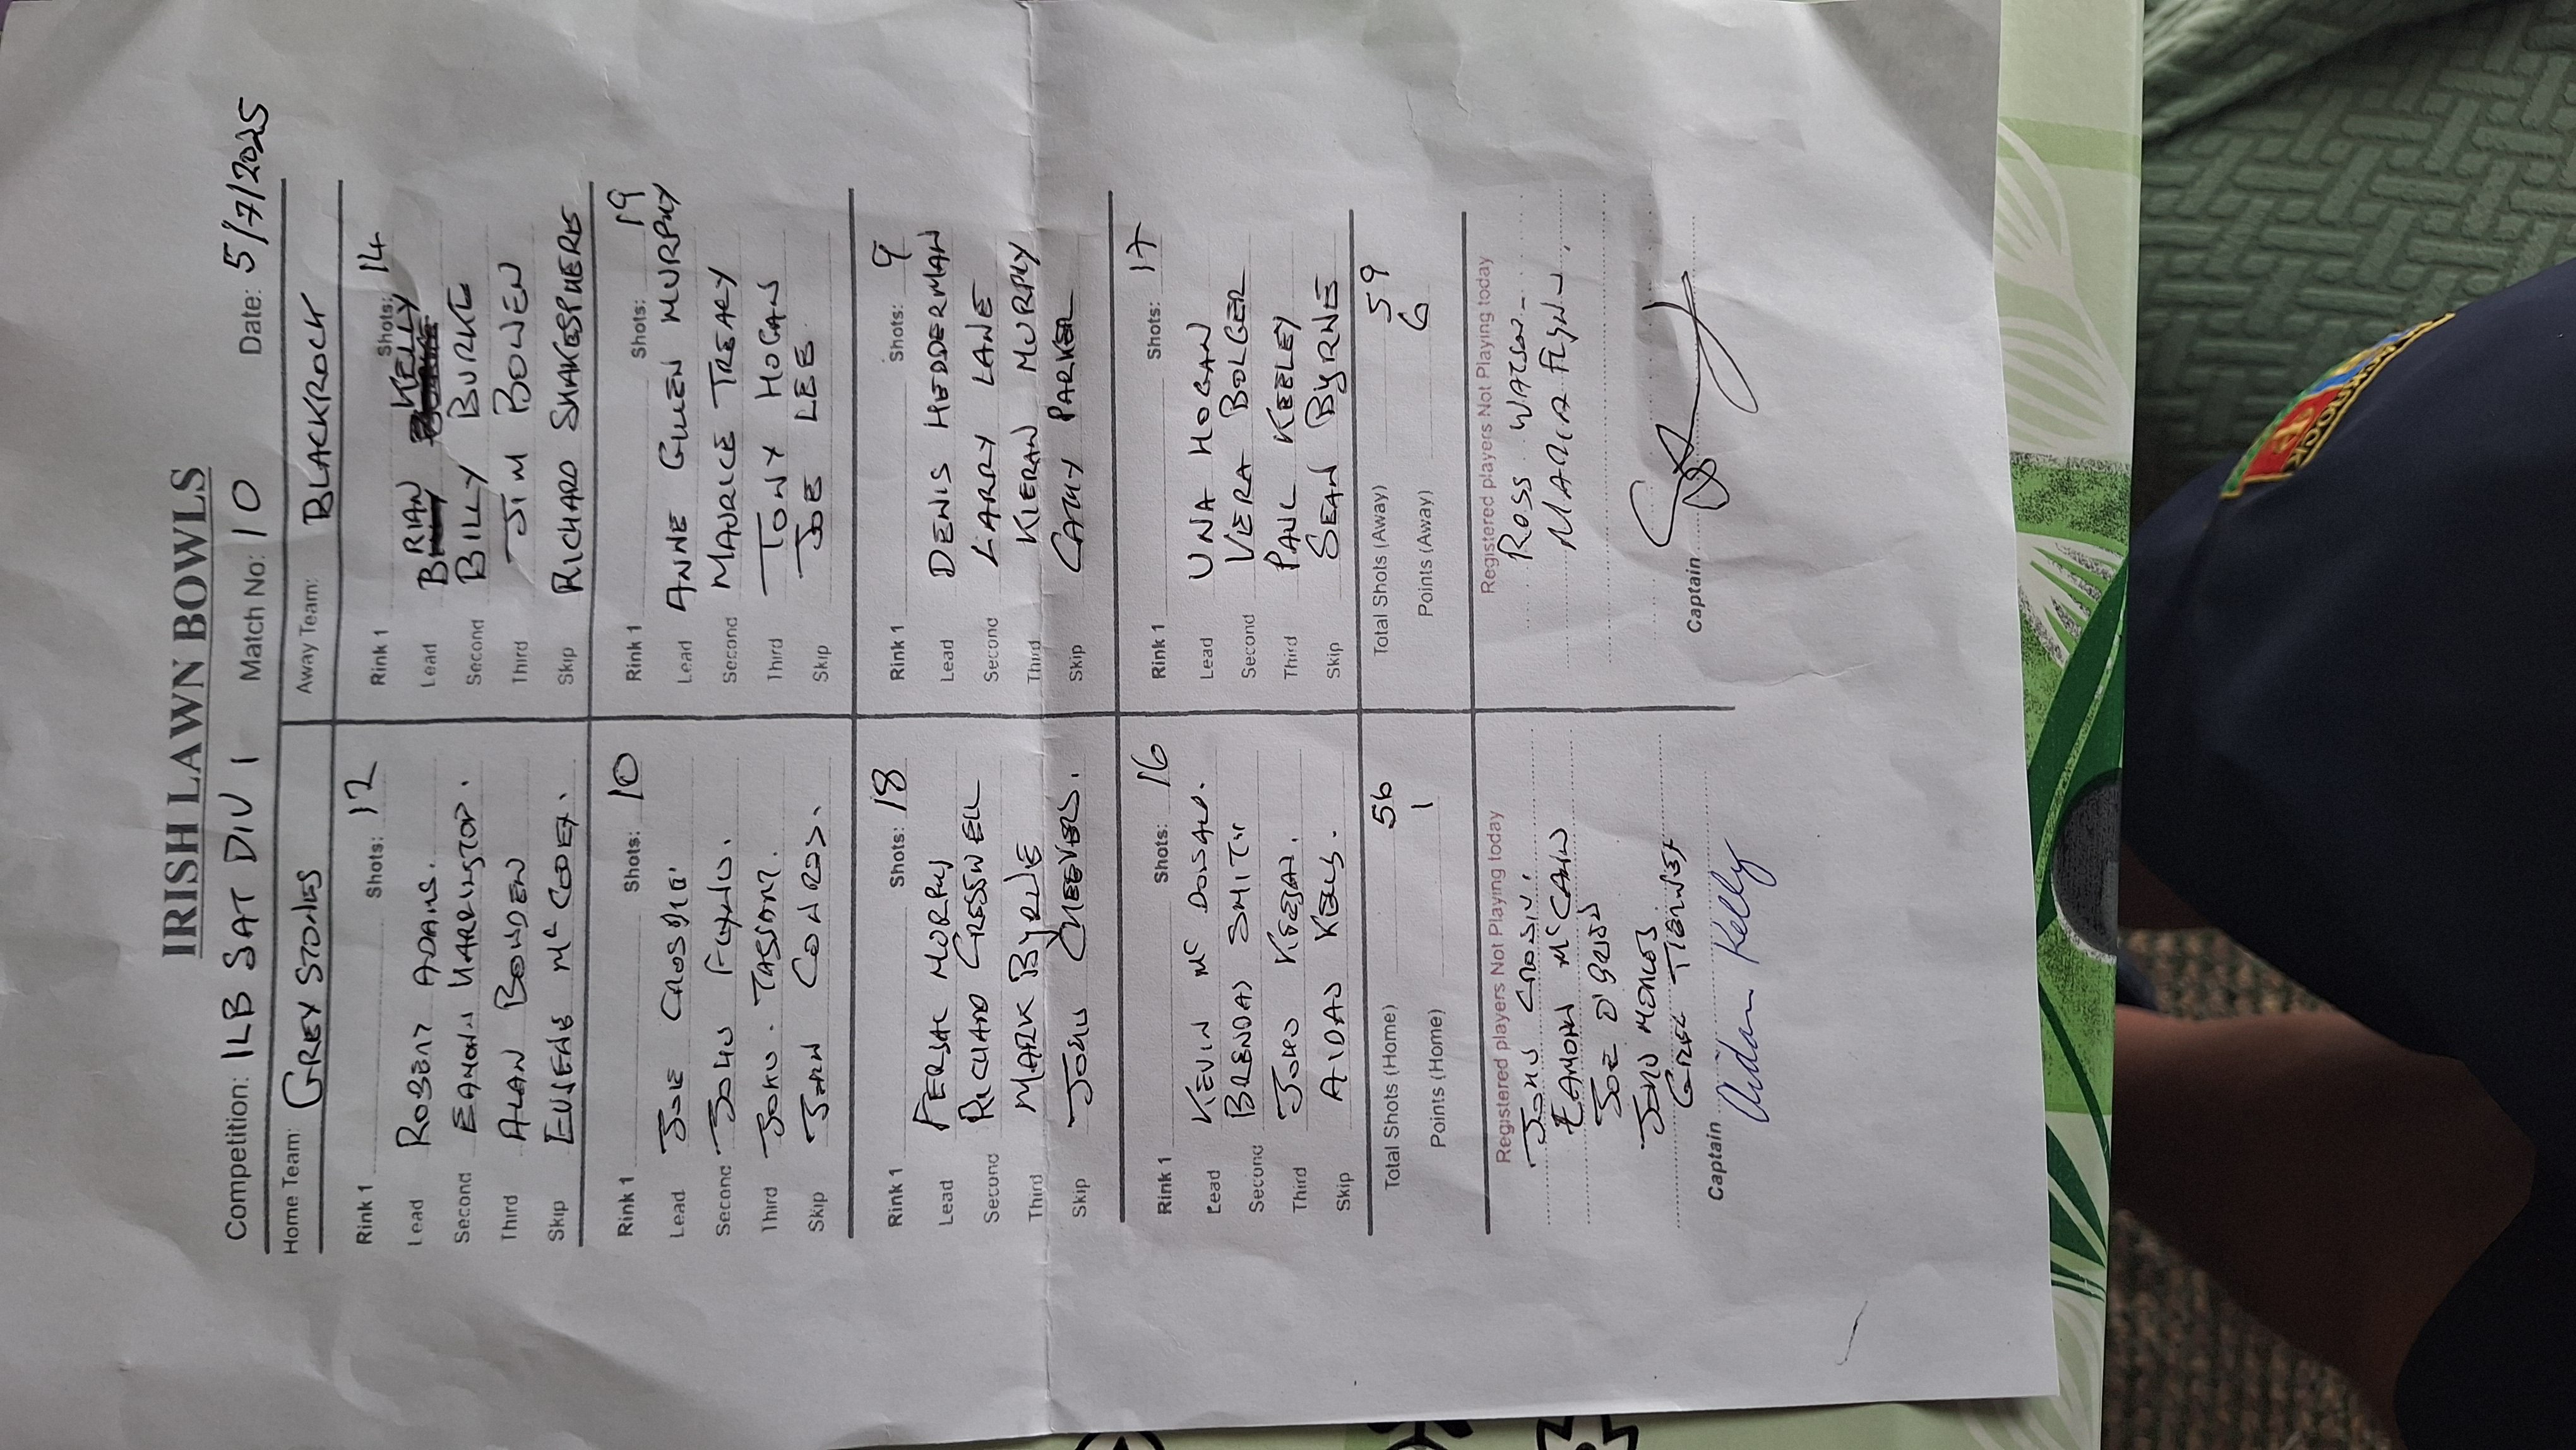 IRISH LAWN BOWLS
Competition: ILB SAT DIV 1 Match No: 10 Date: 5/7/2025
Home Team: GREYSTONES Away Team: BLACKROCK
Rink 1 Shots: 12 Rink 1 Shots: 14
Lead ROBERT ADAMS. Lead BRIAN KELLY
Second EAMONN HARRINGTON. Second BILLY BURKE
Third ALAN BOWDEN Third JIM BOWEN
Skip EUGENE Mc Skip RICHARD SHAKESPHERE
Rink 1 Shots: 10 Rink 1 Shots: 19
Lead JOE CROSBIE Lead ANNE GWEN MURPHY
Second JOHN FLYNN. Second MAURICE TREACY
Third JOHN. Third TONY HOGAN
Skip JOHN CONROY. Skip JOE LEE
Rink 1 Shots: 18 Rink 1 Shots: 9
Lead FERGAL MORPHY Lead DENIS HEDDERMAN
Second RICHARD CRESSWELL Second LARRY LANE
Third MARK BYRNE Third KIERAN MURPHY
Skip JOHN CHEEVERS. Skip CATHY PARKER
Rink 1 Shots: 16 Rink 1 Shots: 17
Lead KEVIN Mc DONALD. Lead UNA HOGAN
Second BRENDAN SMITH Second VERA BOLGER
Third JOHN KEEGAN. Third PAUL KEELEY
Skip AIDAN KELLY. Skip SEAN BYRNE
Total Shots (Home) 56 Total Shots (Away) 59
Points (Home) 1 Points (Away) 6
Registered players Not Playing today Registered players Not Playing today
JOHN CRONIN. ROSS WATSON
EAMONN McCANN MARIA FLYNN.
JOE
JOHN
TIERNEY
Captain Aidan Kelly Captain